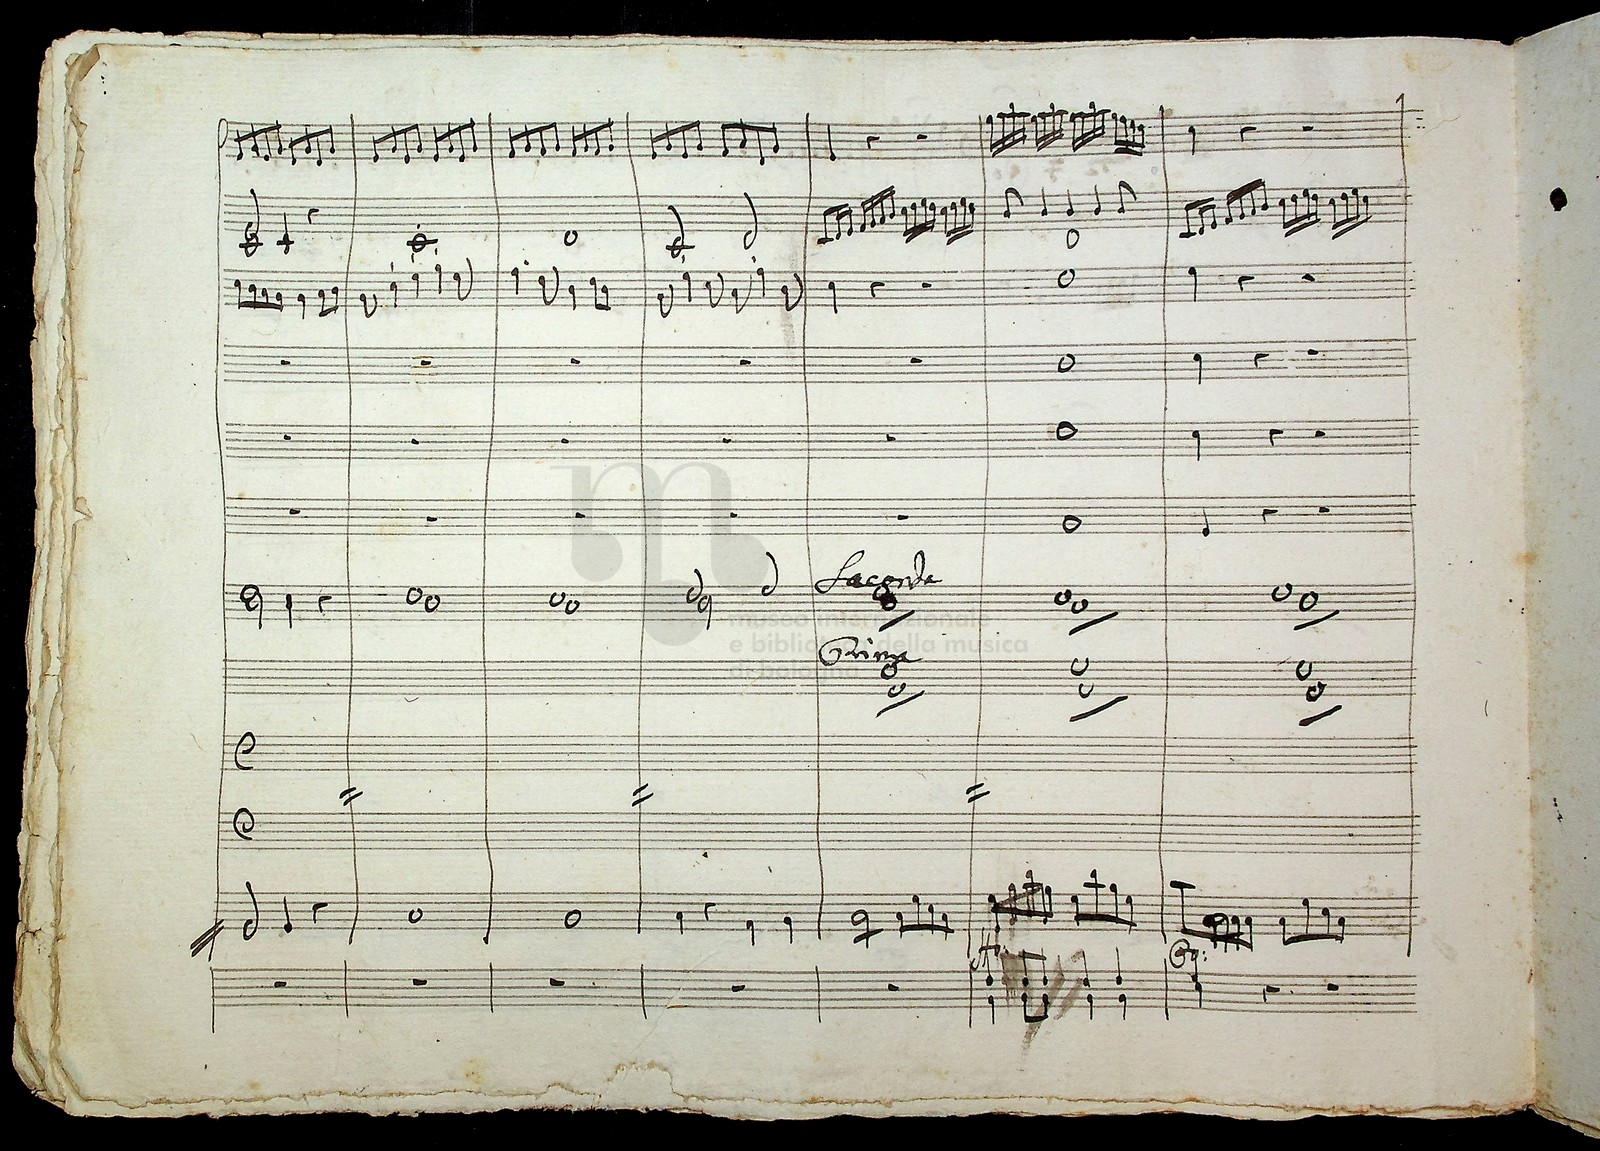 Seconda
Prima
museo internazionale
e biblioteca della musica
di bologna